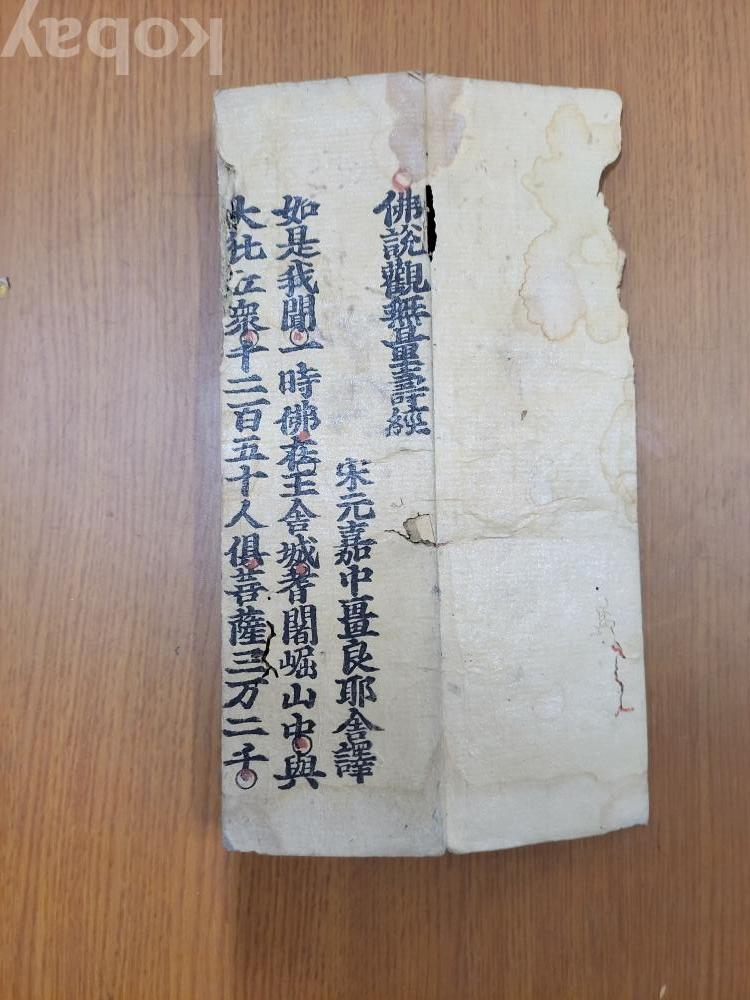 佛說觀無量壽經
宋元嘉中畺良耶舍譯
如是我聞一時佛在王舍城耆闍崛山中與
大比丘衆千二百五十人俱菩薩三万二千
kobay